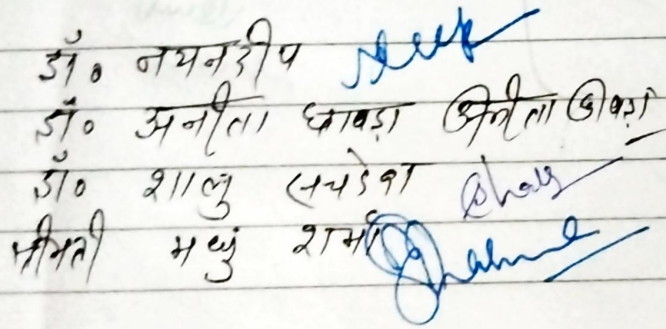 डॉ० नयनदीप
डॉ० अनीता छाबड़ा अनीता छाबड़ा
डॉ० शालु सचदेवा
श्रीमती मधु शर्मा